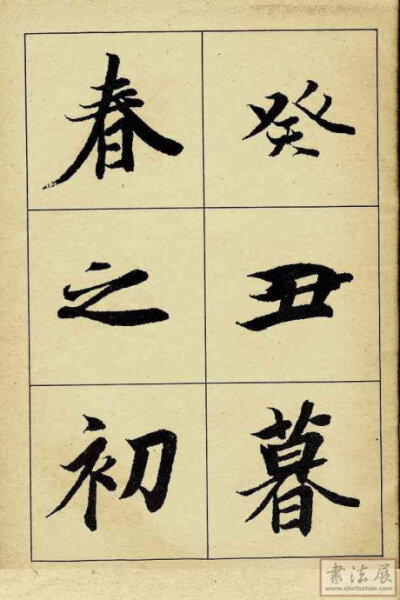 癸丑暮
春之初
书法展
www.shufazhan.com